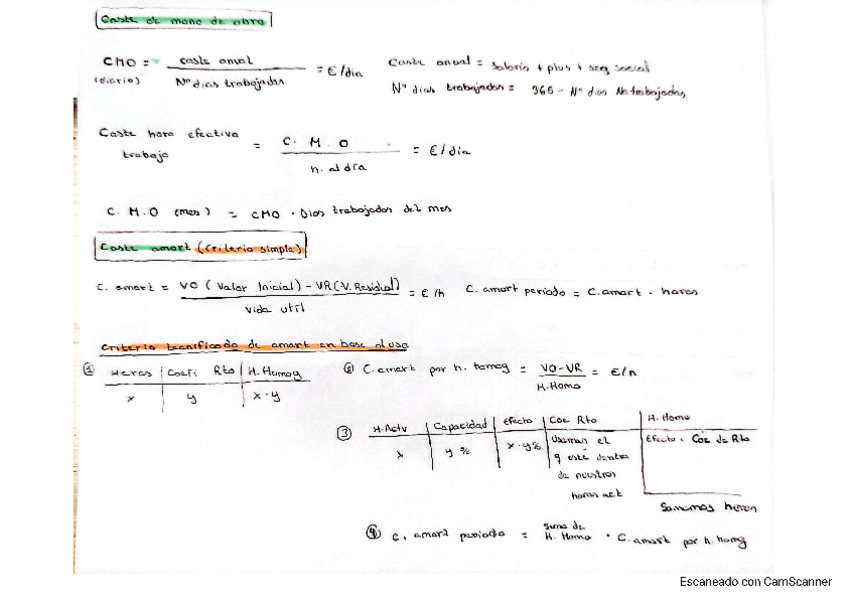 Coste de mano de obra
CMO = coste anual / Nº dias trabajados = €/dia
(diario)
Coste anual = Salario + plus + seg social
Nº dias trabajados = 365 - Nº dias No trabajados
Coste hora efectiva trabajo = C. M. O / h. al día = €/dia
C. M. O (mes) = CMO · Dias trabajados del mes
Coste amort (criterio simple)
C. amort = VO (Valor Inicial) - VR (V. Residual) / vida util = €/h
C. amort periodo = C. amort · horas
Criterio tecnificado de amort en base al uso
① Horas | Coefi Rto | H. Homog
x | y | x · y
② C. amort por h. homog = VO-VR / H. Homo = €/h
③ H. Activ | Capacidad | Efecto | Coe Rto | H. Homo
x | y % | x · y% | Usamos el | Efecto · Coe de Rto
q esté dentro
de nuestras
horas act
Sumamos horas
④ C. amort periodo = suma de H. Homo · C. amort por h. homog
Escaneado con CamScanner